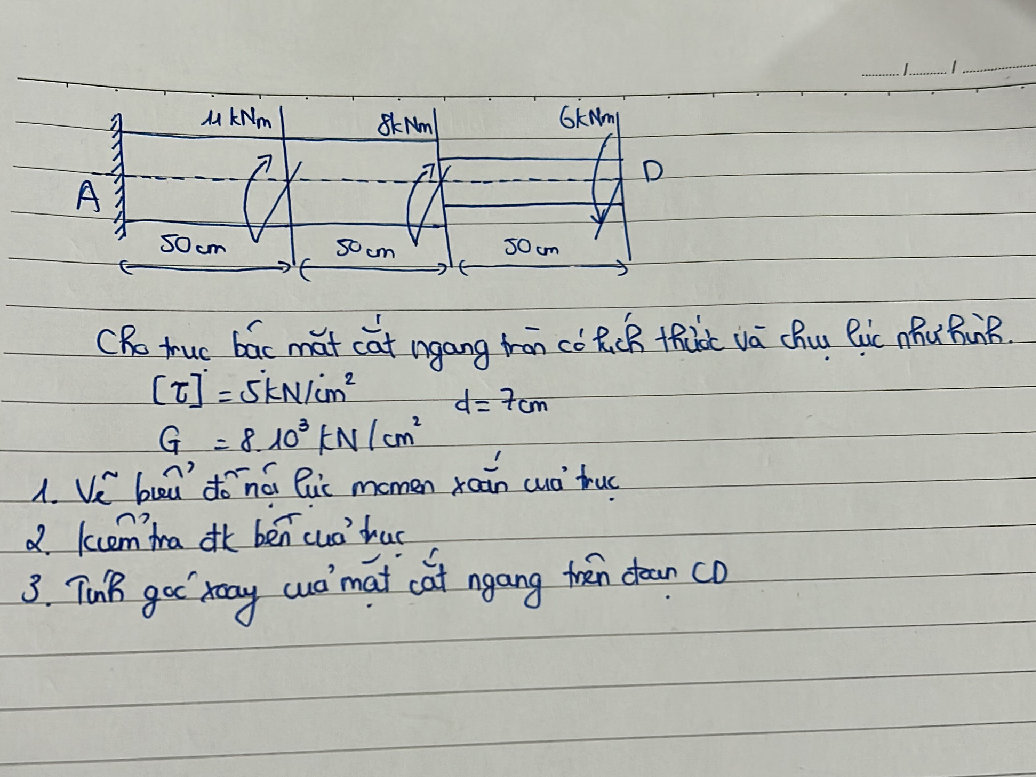 11 kNm 8kNm 6kNm
A D
50 cm 50 cm 50 cm
Cho trục bậc mặt cắt ngang tròn có kích thước và chịu lực như hình.
[τ] = 5kN/cm² d = 7cm
G = 8.10³ kN/cm²
1. Vẽ biểu đồ nội lực momen xoắn của trục
2. Kiểm tra đk bền của trục
3. Tính góc xoay của mặt cắt ngang trên đoạn CD